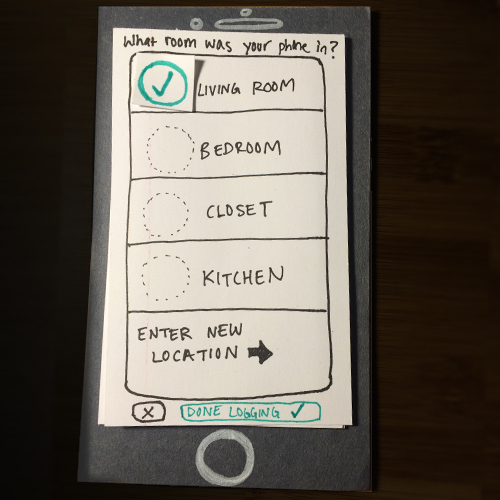 What room was your phone in?
LIVING ROOM
BEDROOM
CLOSET
KITCHEN
ENTER NEW
LOCATION
X
DONE LOGGING